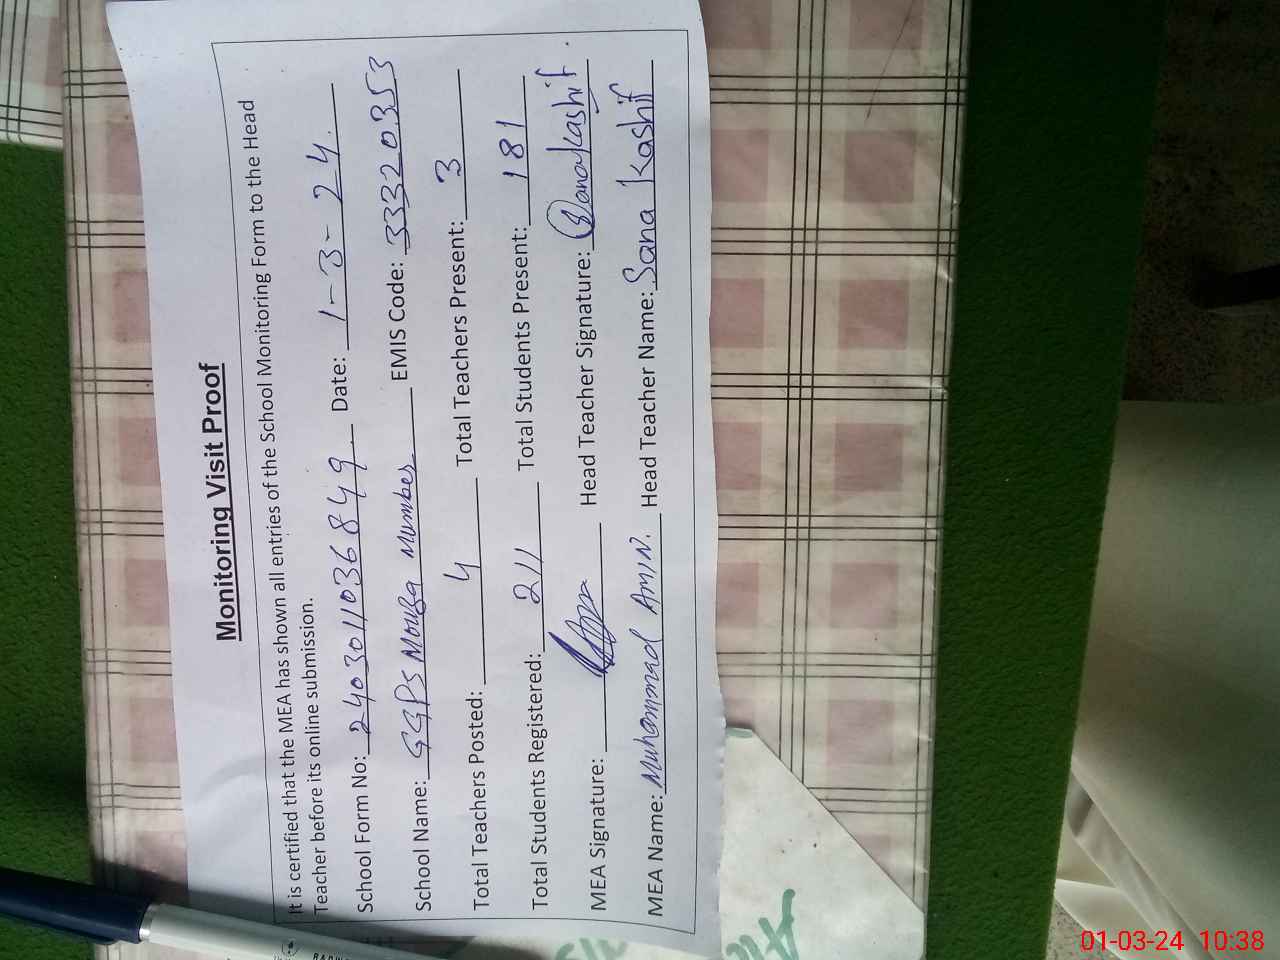 Monitoring Visit Proof
It is certified that the MEA has shown all entries of the School Monitoring Form to the Head
Teacher before its online submission.
School Form No: 240301036849 Date: 1-3-24
School Name: GGPS Mouza Mumber EMIS Code: 33320353
Total Teachers Posted: 4 Total Teachers Present: 3
Total Students Registered: 211 Total Students Present: 181
MEA Signature: Head Teacher Signature: Sana Kashif
MEA Name: Muhammad AMIN. Head Teacher Name: Sana Kashif
01-03-24 10:38